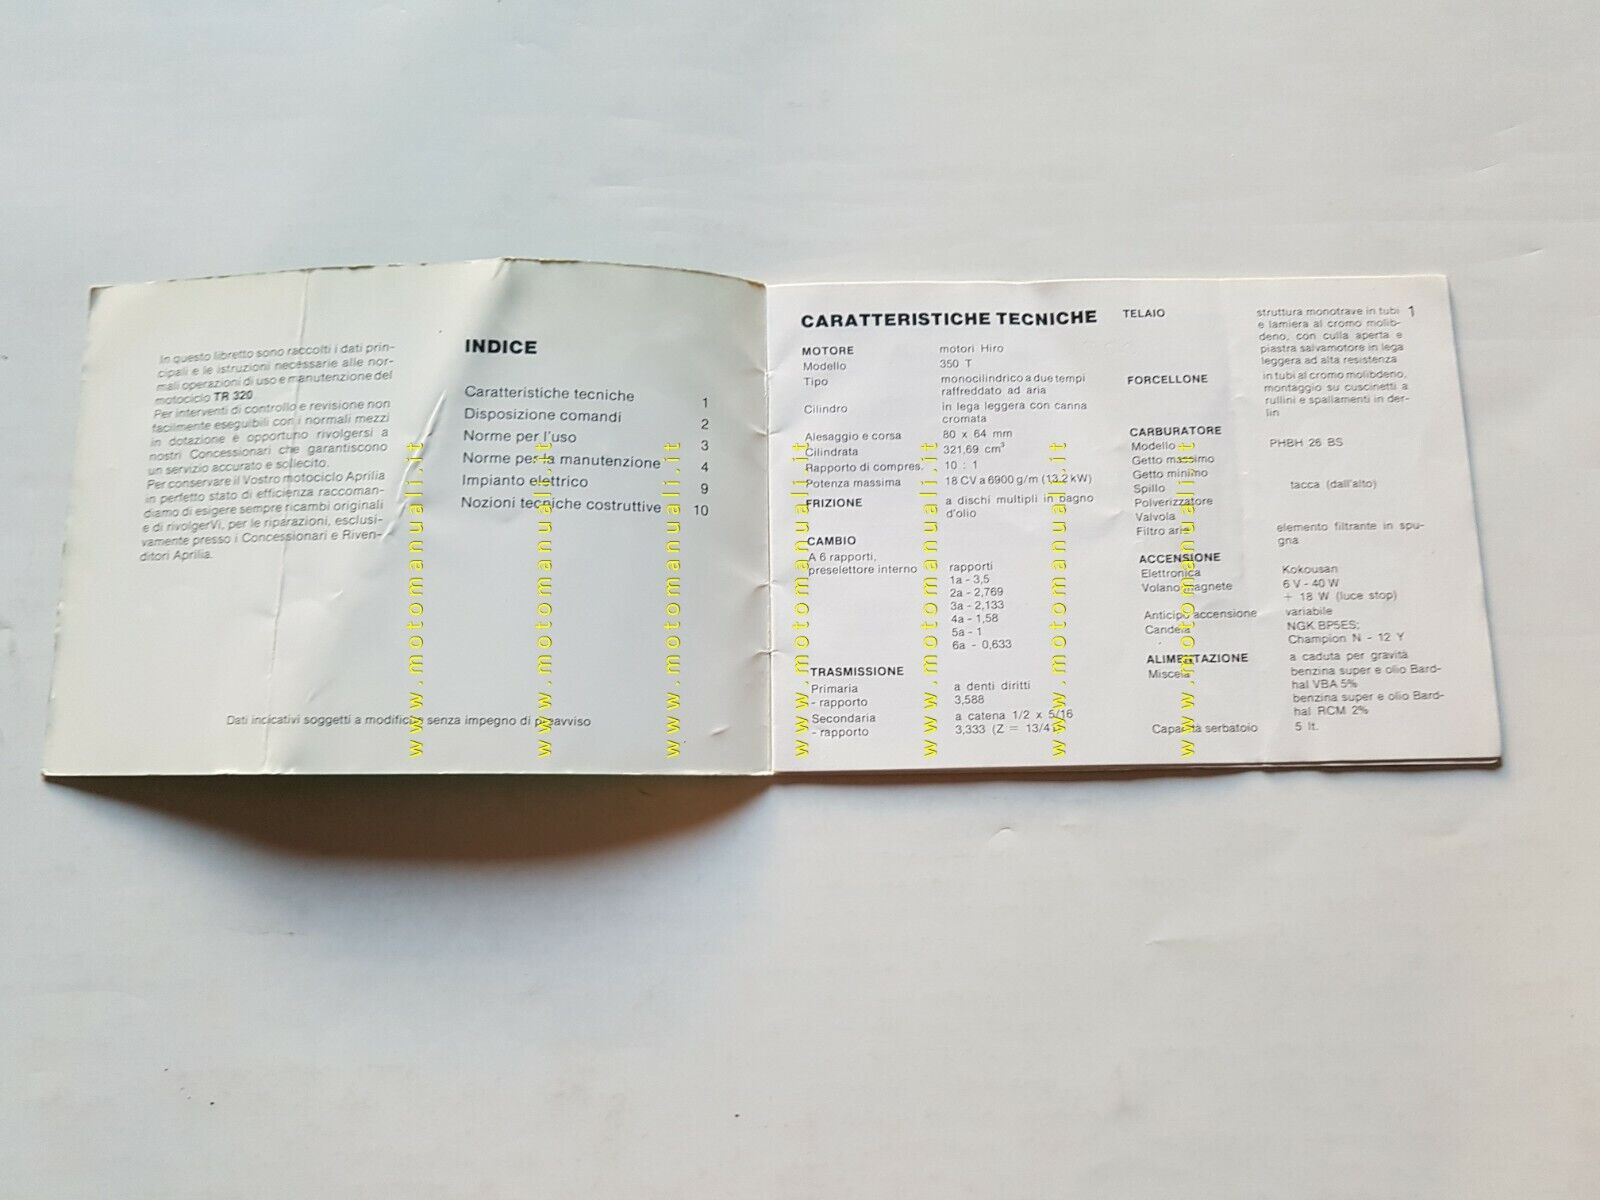 In questo libretto sono raccolti i dati prin-
cipali e le istruzioni necessarie alle nor-
mali operazioni di uso e manutenzione del
motociclo TR 320
Per interventi di controllo e revisione non
facilmente eseguibili con i normali mezzi
in dotazione è opportuno rivolgersi a
nostri Concessionari che garantiscono
un servizio accurato e sollecito.
Per conservare il Vostro motociclo Aprilia
in perfetto stato di efficienza raccoman-
diamo di esigere sempre ricambi originali
e di rivolgerVi, per le riparazioni, esclusi-
vamente presso i Concessionari e Riven-
ditori Aprilia.
INDICE
Caratteristiche tecniche 1
Disposizione comandi 2
Norme per l'uso 3
Norme per la manutenzione 4
Impianto elettrico 9
Nozioni tecniche costruttive 10
Dati indicativi soggetti a modifiche senza impegno di preavviso
CARATTERISTICHE TECNICHE
MOTORE motori Hiro
Modello 350 T
Tipo monocilindrico a due tempi
raffreddato ad aria
Cilindro in lega leggera con canna
cromata
Alesaggio e corsa 80 x 64 mm
Cilindrata 321,69 cm³
Rapporto di compres. 10 : 1
Potenza massima 18 CV a 6900 g/m (13,2 kW)
FRIZIONE a dischi multipli in bagno
d'olio
CAMBIO
A 6 rapporti,
preselettore interno rapporti
1a - 3,5
2a - 2,769
3a - 2,133
4a - 1,58
5a - 1
6a - 0,633
TRASMISSIONE
Primaria a denti diritti
- rapporto 3,588
Secondaria a catena 1/2 x 5/16
- rapporto 3,333 (Z = 13/4
TELAIO struttura monotrave in tubi 1
e lamiera al cromo molib-
deno, con culla aperta e
piastra salvamotore in lega
leggera ad alta resistenza
FORCELLONE in tubi al cromo molibdeno,
montaggio su cuscinetti a
rullini e spallamenti in der-
lin
CARBURATORE
Modello PHBH 26 BS
Getto massimo
Getto minimo
Spillo tacca (dall'alto)
Polverizzatore
Valvola
Filtro aria elemento filtrante in spu-
gna
ACCENSIONE
Elettronica Kokousan
Volano magnete 6 V - 40 W
+ 18 W (luce stop)
Anticipo accensione variabile
Candela NGK BP5ES;
Champion N - 12 Y
ALIMENTAZIONE a caduta per gravità
Miscela benzina super e olio Bard-
hal VBA 5%
benzina super e olio Bard-
hal RCM 2%
Capacità serbatoio 5 lt.
www.motomanuali.it
www.motomanuali.it
www.motomanuali.it
www.motomanuali.it
www.motomanuali.it
www.motomanuali.it
www.motomanuali.it